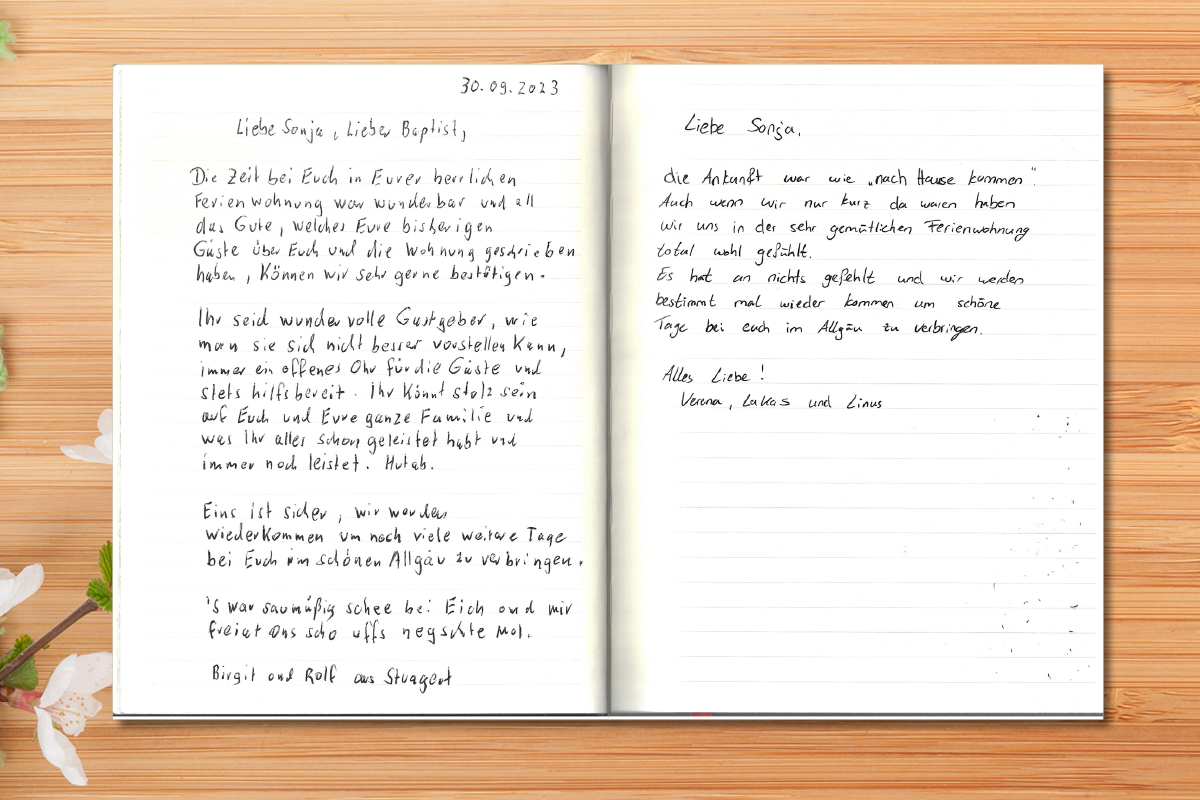 30.09.2023
Liebe Sonja, Lieber Baptist,
Die Zeit bei Euch in Eurer herrlichen
Ferienwohnung war wunderbar und all
das Gute, welches Eure bisherigen
Gäste über Euch und die Wohnung geschrieben
haben, können wir sehr gerne bestätigen.
Ihr seid wundervolle Gastgeber, wie
man sie sich nicht besser vorstellen kann,
immer ein offenes Ohr für die Gäste und
stets hilfsbereit. Ihr könnt stolz sein
auf Euch und Eure ganze Familie und
was Ihr alles schon geleistet habt und
immer noch leistet. Hut ab.
Eins ist sicher, wir werden
wiederkommen um noch viele weitere Tage
bei Euch im schönen Allgäu zu verbringen.
's war saumäßig schee bei Eich ond mir
freiat ons scho uffs negschte Mol.
Birgit ond Rolf aus Stuagert
Liebe Sonja,
die Ankunft war wie „nach Hause kommen“.
Auch wenn wir nur kurz da waren haben
wir uns in der sehr gemütlichen Ferienwohnung
total wohl gefühlt.
Es hat an nichts gefehlt und wir werden
bestimmt mal wieder kommen um schöne
Tage bei euch im Allgäu zu verbringen.
Alles Liebe!
Verena, Lukas und Linus